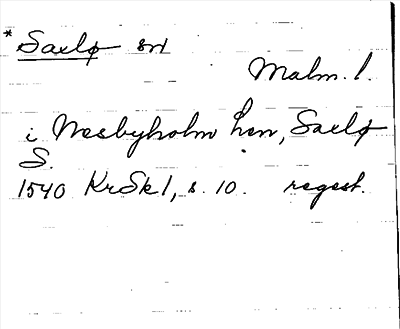 * Saelø sn
Malm. l.
i Næsbyholm Len, Saelø
S.
1540 KrSk1, s. 10. regest.